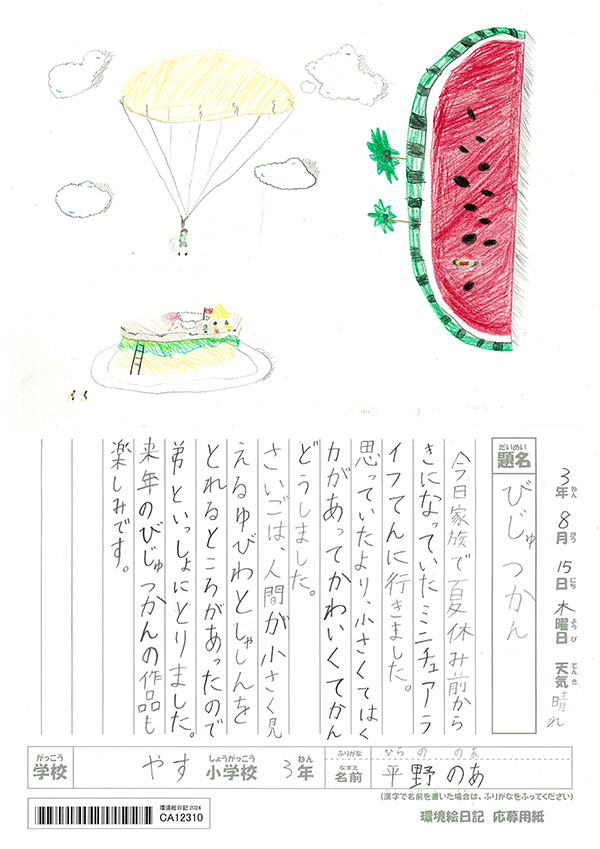 3年 8月 15日 木曜日 天気 晴れ
ねん がつ にち ようび てんき
だいめい
題名
びじゅつかん
今日家族で夏休み前から
きになっていたミニチュアラ
イフてんに行きました。
思っていたより、小さくてはく
力があってかわいくてかん
どうしました。
さいごは、人間が小さく見
えるゆびわとしゃしんを
とれるところがあったので
弟といっしょにとりました。
来年のびじゅつかんの作品も
楽しみです。
がっこう しょうがっこう ねん
学校 やす 小学校 3年
ふりがな ひらの のあ
なまえ
名前 平野 のあ
(漢字で名前を書いた場合は、ふりがなをふってください)
環境絵日記 2024
CA12310
環境絵日記 応募用紙